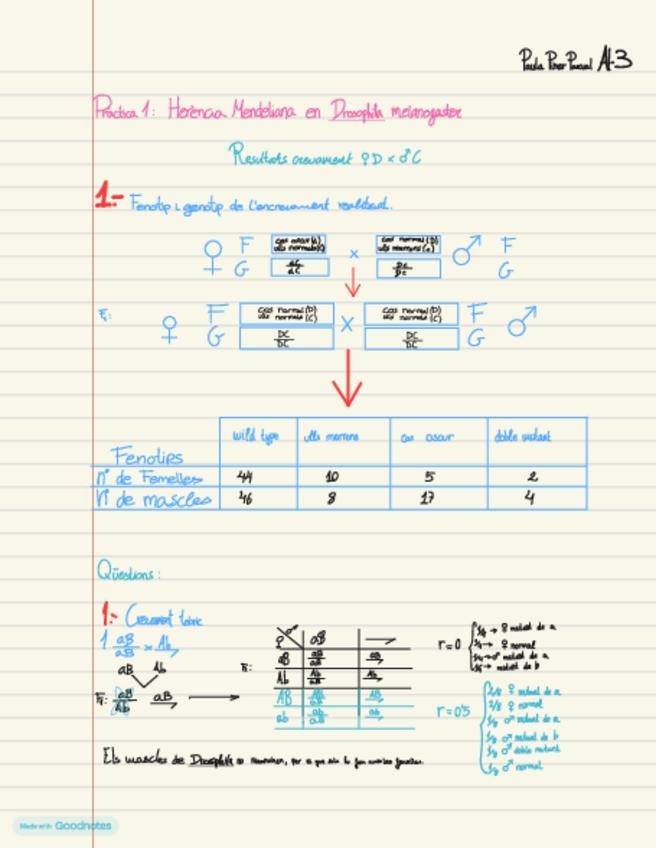 Paula Pérez Pascual A1.3
Pràctica 1: Herència Mendeliana en Drosophila melanogaster
Resultats creuament ♀D x ♂C
1.- Fenotip i genotip de l'encreuament realitzat.
♀ F cos oscur(d) ulls normals(C) x cos normal(D) ulls marrons(c) ♂ F
G dC/dC Dc/Dc G
F₁: ♀ F cos normal(D) ulls normals(C) X cos normal(D) ulls normals(C) F ♂
G DC/DC DC/DC G
Fenotips wild type ulls marrons cos oscur doble mutant
nº de Femelles 44 10 5 2
Nº de mascles 46 8 17 4
Qüestions:
1.- Creuament teòric
1 aB/aB x Ab
aB Ab
F₁: aB/Ab aB
F₂: ♀ ♂ aB
aB aB/aB aB
Ab Ab/aB Ab
AB AB/aB AB
ab ab/aB ab
r=0
1/4 → ♀ mutant de a
1/4 → ♀ normal
1/4 → ♂ mutant de a
1/4 → mutant de b
r=0'5
2/8 ♀ mutant de a
2/8 ♀ normal
1/8 ♂ mutant de a
1/8 ♂ mutant de b
1/8 ♂ doble mutant
1/8 ♂ normal
Els mascles de Drosophila no recombinen, per
Made with Goodnotes